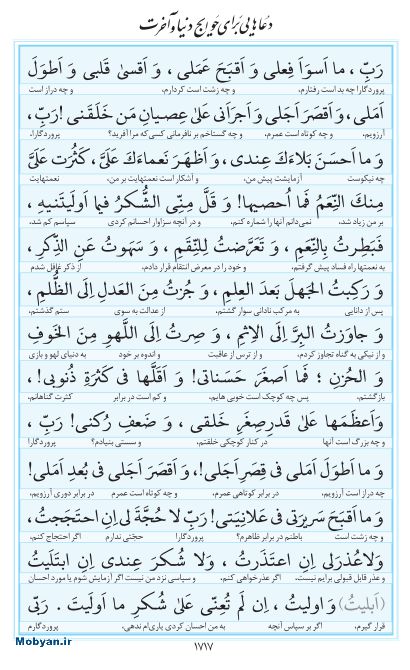 دعاهایی برای حوایج دنیا و آخرت
رَبِّ، ما اَسوَاَ فِعلی وَ اَقبَحَ عَمَلی، وَ اَقسیٰ قَلبی وَ اَطوَلَ
پروردگارا چه بد است رفتارم، و چه زشت است کردارم، و چه دراز است
اَمَلی، وَ اَقصَرَ اَجَلی وَ اَجرَأنی عَلیٰ عِصیانِ مَن خَلَقَنی! رَبِّ،
آرزویم، و چه کوتاه است عمرم، و چه گستاخم بر نافرمانی کسی که مرا آفرید؟ پروردگارا،
وَ ما اَحسَنَ بَلاءَكَ عِندی، وَ اَظهَرَ نَعماءَكَ عَلَیَّ، كَثُرَت عَلَیَّ
چه نیکوست آزمایشت پیش من، و آشکار است نعمتهایت بر من، نعمتهایت
مِنكَ النِّعَمُ فَما اُحصیها! وَ قَلَّ مِنِّی الشُّكرُ فیما اَولَیتَنیهِ،
بر من زیاد شد، نمی‌دانم آنها را شماره کنم، و در آنچه سزاوار احسانم کردی سپاسم کم شد.
فَبَطِرتُ بِالنِّعَمِ، وَ تَعَرَّضتُ لِلنِّقَمِ، وَ سَهَوتُ عَنِ الذِّكرِ،
به نعمتها راه فساد پیش گرفتم، و خود را در معرض انتقام قرار دادم، از ذکر غافل شدم
وَ رَكِبتُ الجَهلَ بَعدَ العِلمِ، وَ جُزتُ مِنَ العَدلِ اِلَی الظُّلمِ،
پس از دانایی به مرکب نادانی سوار گشتم، از عدالت به سوی ستم گذشتم،
وَ جاوَزتُ البِرَّ اِلَی الاِثمِ، وَ صِرتُ اِلَی اللَّهوِ مِنَ الخَوفِ
و از نیکی به گناه تجاوز کردم، و از ترس از عاقبت و اندوه بر خود به دنیای لهو و بازی
وَ الحُزنِ؛ فَما اَصغَرَ حَسَناتی! وَ اَقَلَّها فی كَثرَةِ ذُنوبی!،
بازگشتم، پس چه کوچک است خوبی هایم، و کم است در برابر کثرت گناهانم،
وَ اَعظَمَها عَلیٰ قَدرِ صِغَرِ خَلقی، وَ ضَعفِ رُكنی! رَبِّ،
و چه بزرگ است آنها در کنار کوچکی خلقتم، و سستی بنیادم؟ پروردگارا
وَ ما اَطوَلَ اَمَلی فی قِصَرِ اَجَلی!، وَ اَقصَرَ اَجَلی فی بُعدِ اَمَلی!
چه دراز است آرزویم، در برابر کوتاهی عمرم، و چه کوتاه است عمرم در برابر دوری آرزویم،
وَ ما اَقبَحَ سَریرَتی فی عَلانِیَتی! رَبِّ لا حُجَّةَ لی اِنِ احتَجَجتُ،
و چه زشت است باطنم در برابر ظاهرم؟ پروردگارا حجتی ندارم اگر احتجاج کنم،
وَ لا عُذرَ لی اِنِ اعتَذَرتُ، وَ لا شُكرَ عِندی اِنِ ابتَلَیتُ
و عذر قابل قبولی برایم نیست، اگر عذرخواهی کنم، و سپاسی نزد من نیست اگر آزمایش شوم یا مورد احسان
(اُبلیتُ) وَ اُولیتُ، اِن لَم تُعِنّی عَلیٰ شُكرِ ما اُولیتُ. رَبّی
قرار گیرم، اگر بر سپاس آنچه به من احسان کردی یاری‌ام ندهی. پروردگارا
۱۷۱۷
Mobyan.ir